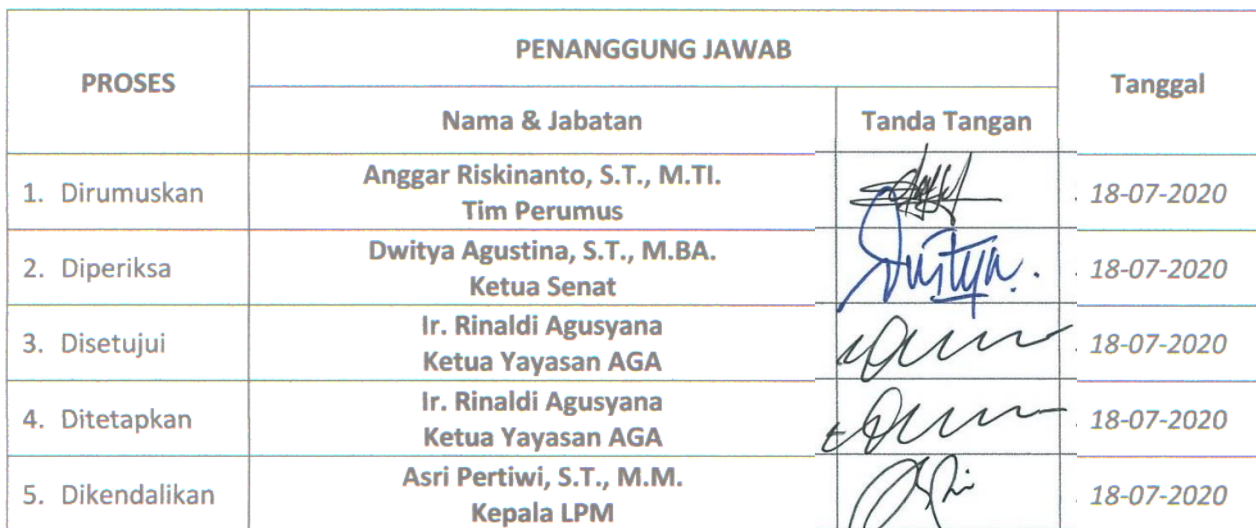 PROSES
PENANGGUNG JAWAB
Tanggal
Nama & Jabatan
Tanda Tangan
1. Dirumuskan
Anggar Riskinanto, S.T., M.TI.
Tim Perumus
18-07-2020
2. Diperiksa
Dwitya Agustina, S.T., M.BA.
Ketua Senat
18-07-2020
3. Disetujui
Ir. Rinaldi Agusyana
Ketua Yayasan AGA
18-07-2020
4. Ditetapkan
Ir. Rinaldi Agusyana
Ketua Yayasan AGA
18-07-2020
5. Dikendalikan
Asri Pertiwi, S.T., M.M.
Kepala LPM
18-07-2020